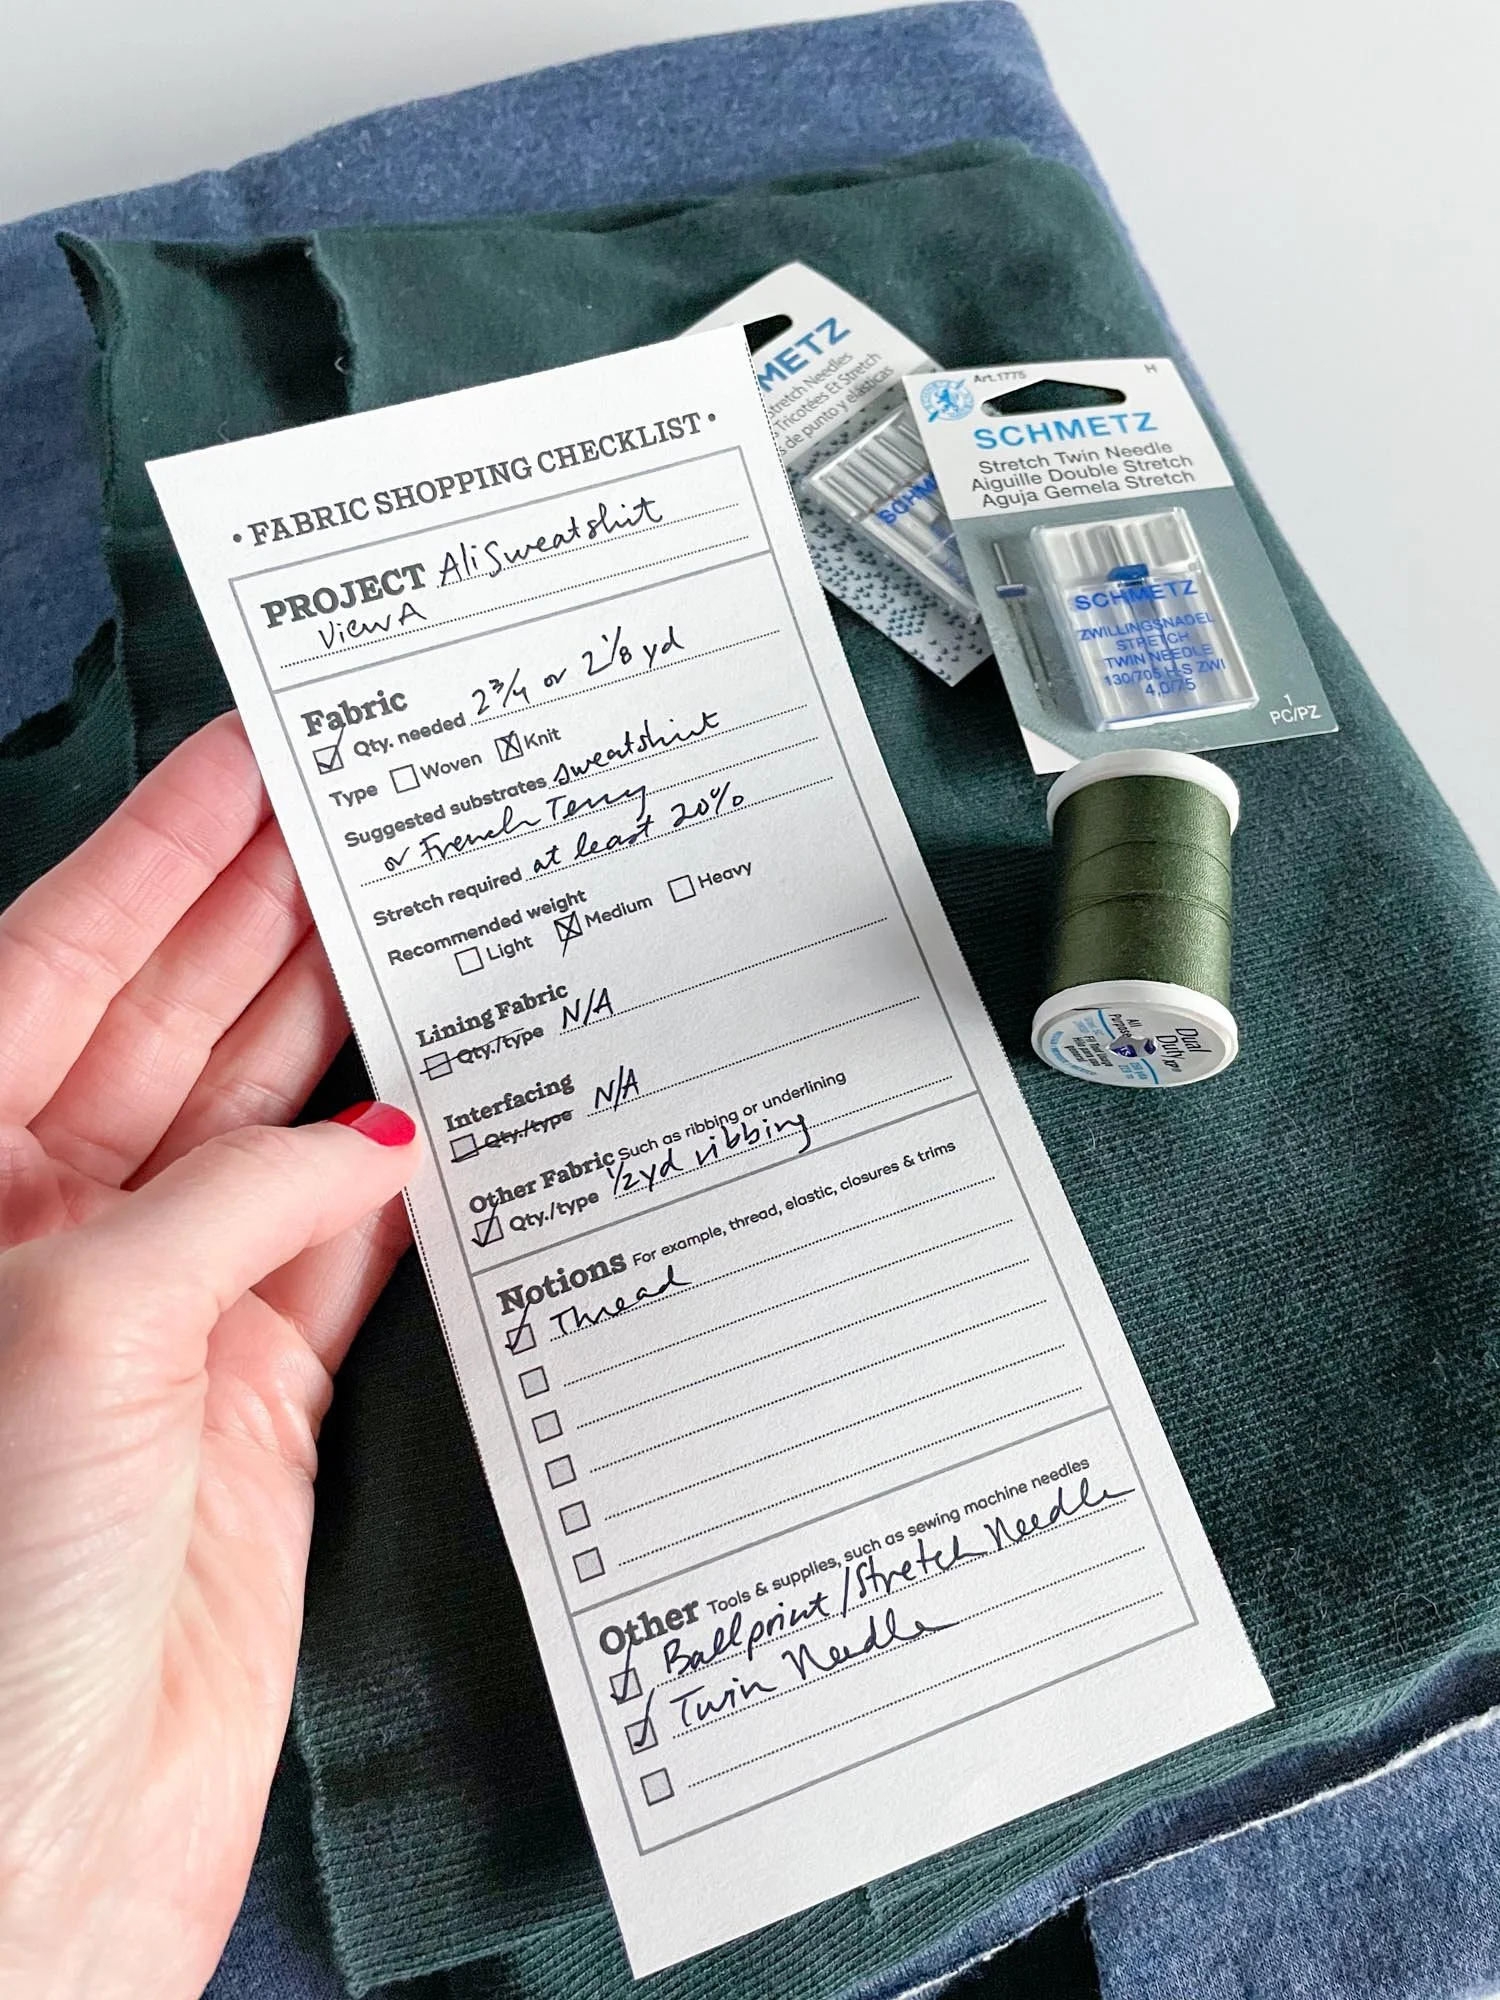 • FABRIC SHOPPING CHECKLIST •
PROJECT Ali Sweatshirt
View A
Fabric
Qty. needed 2 3/4 or 2 1/8 yd
Type Woven Knit
Suggested substrates sweatshirt
or French Terry
Stretch required at least 20%
Recommended weight
Light Medium Heavy
Lining Fabric
Qty./type N/A
Interfacing
Qty./type N/A
Other Fabric Such as ribbing or underlining
Qty./type 1/2 yd ribbing
Notions For example, thread, elastic, closures & trims
Thread
Other Tools & supplies, such as sewing machine needles
Ballpoint/Stretch Needle
Twin Needle
METZ
Stretch Needles
Tricotées Et Stretch
de punto y elásticas
SCHM
Art.1775 H
SCHMETZ
Stretch Twin Needle
Aiguille Double Stretch
Aguja Gemela Stretch
SCHMETZ
ZWILLINGSNADEL
STRETCH
TWIN NEEDLE
130/705 H-S ZWI
4,0/75
1
PC/PZ
Dual
Duty XP
All
Purpose